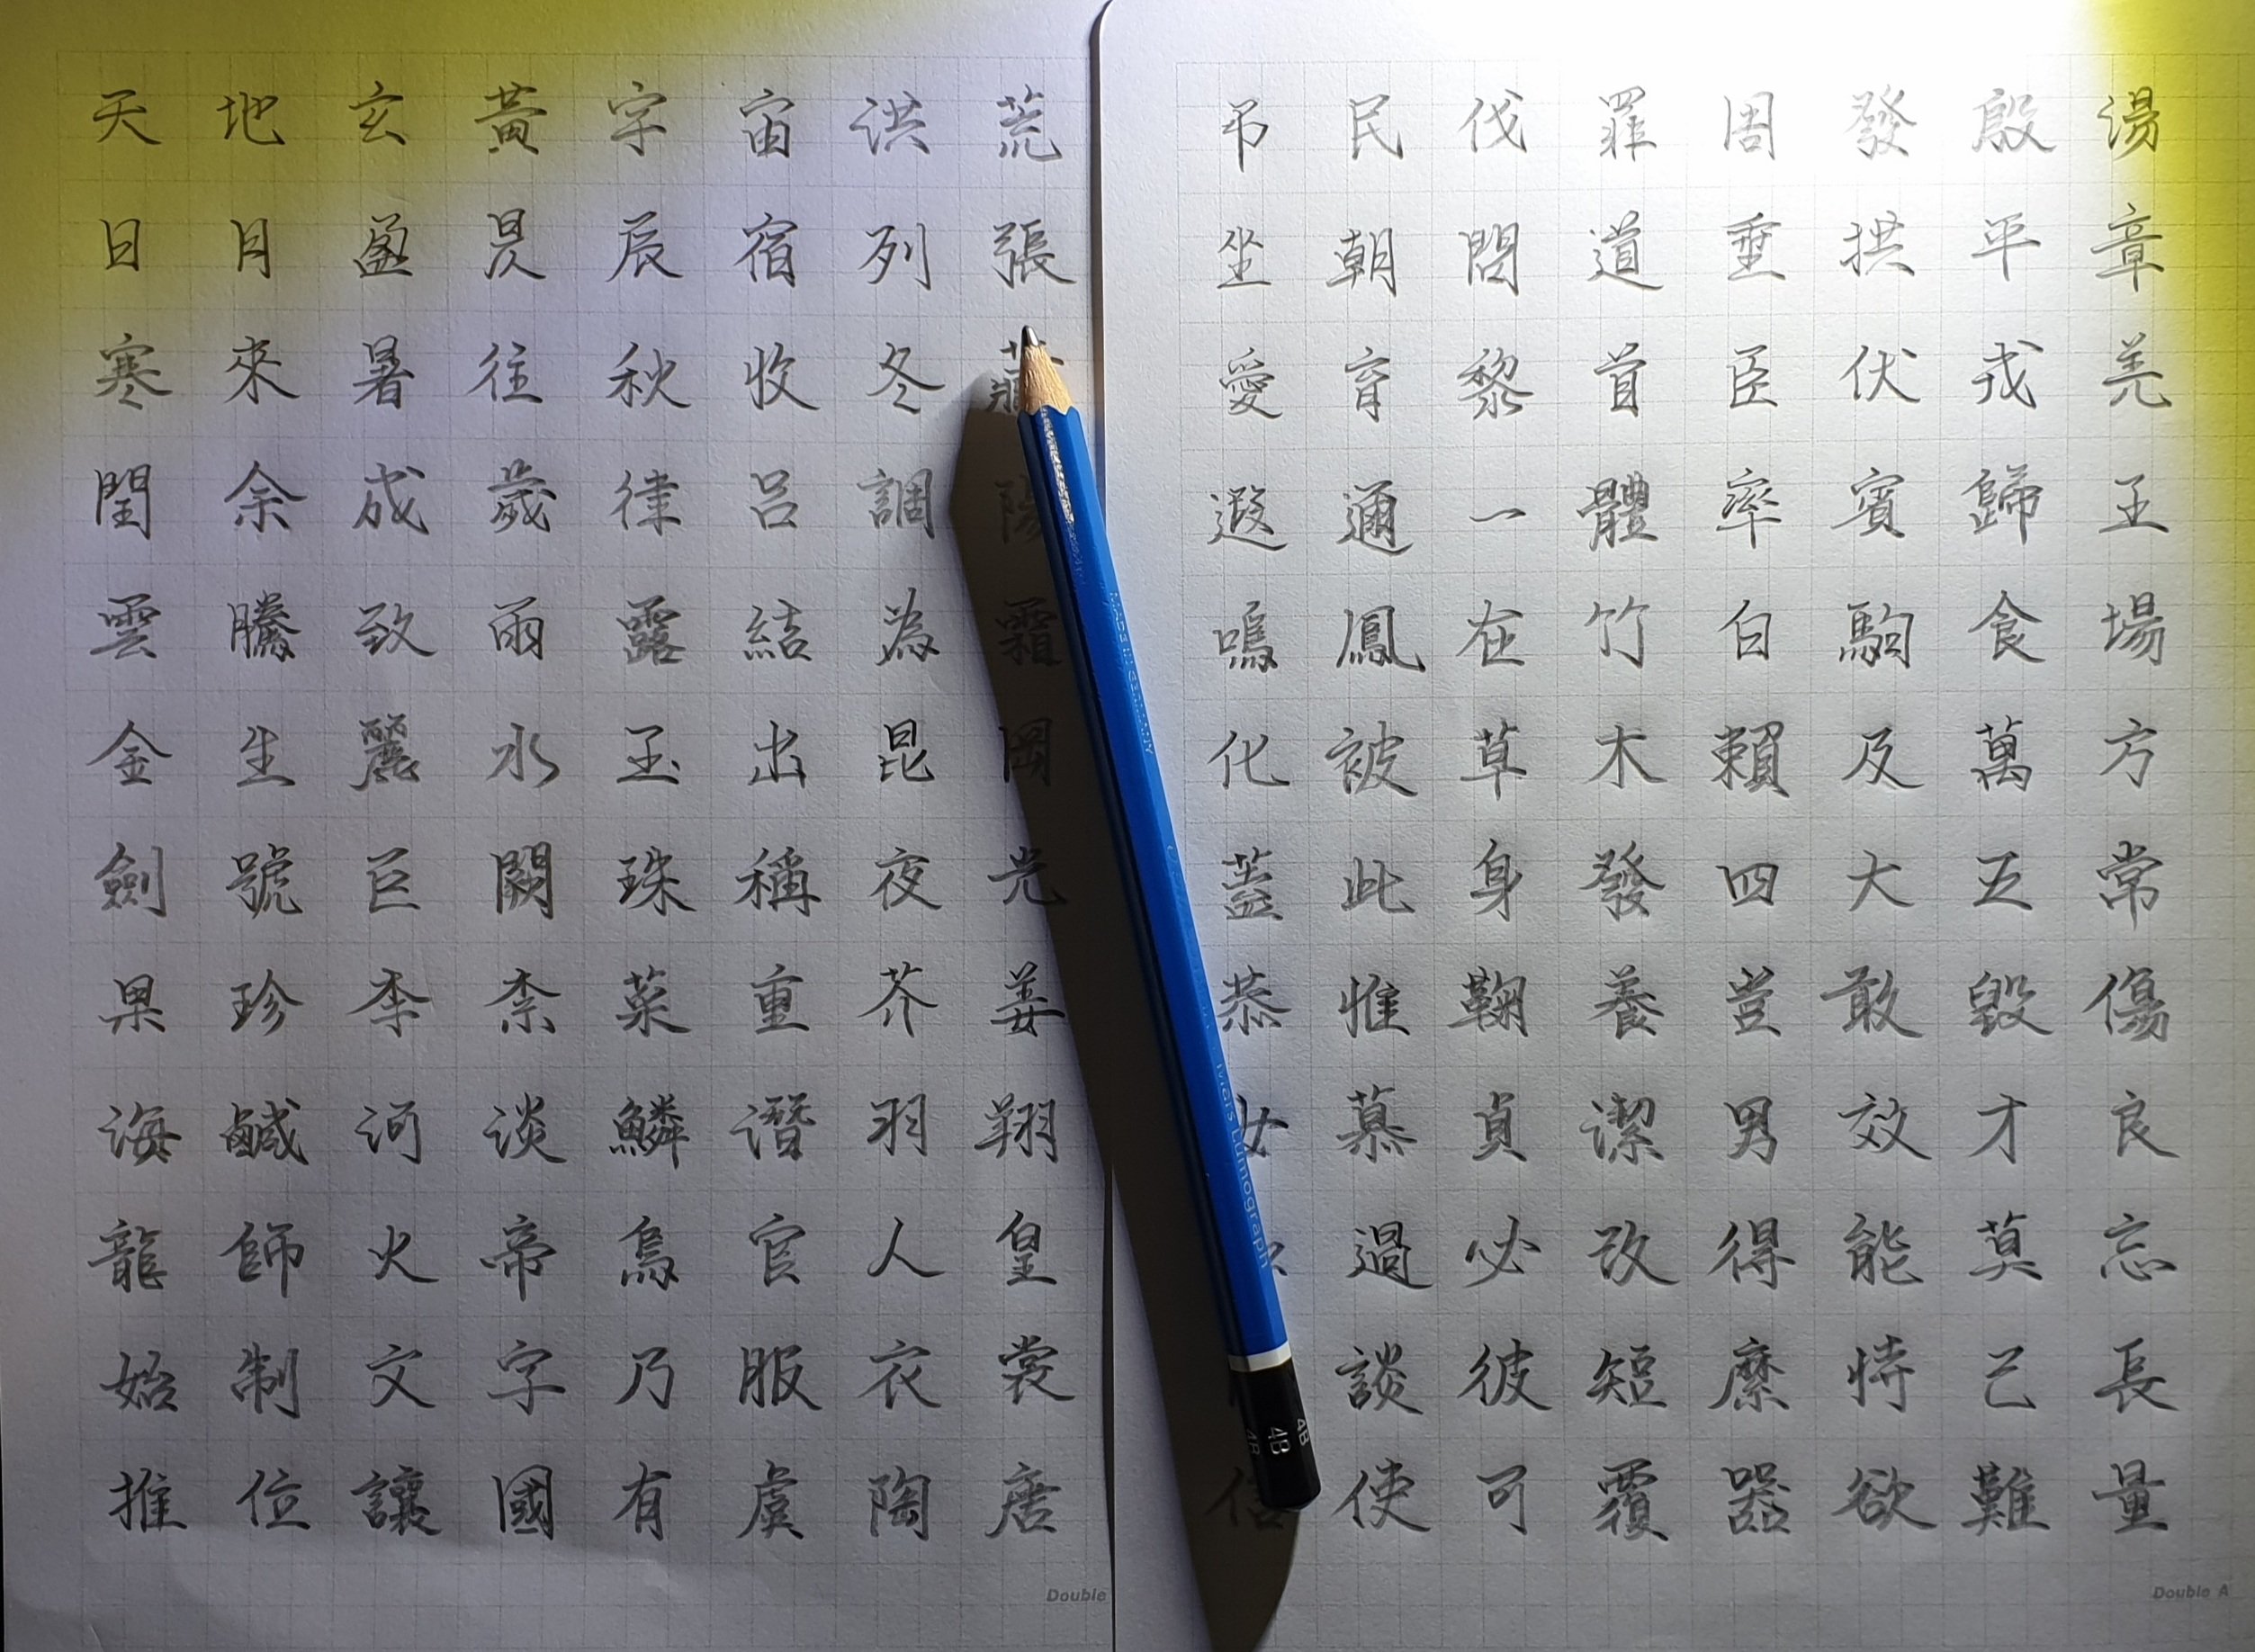 天地玄黃字宙洪荒
日月盈昃辰宿列張
寒來暑往秋收冬藏
閏余成歲律呂調陽
雲騰致雨露結為霜
金生麗水玉出昆岡
劍號巨闕珠稱夜光
果珍李柰菜重芥姜
海鹹河淡鱗潛羽翔
龍師火帝鳥官人皇
始制文字乃服衣裳
推位讓國有虞陶唐
Double
吊民伐罪周發殷湯
坐朝問道垂拱平章
愛育黎首臣伏戎羌
遐邇一體率賓歸王
鳴鳳在竹白駒食場
化被草木賴及萬方
蓋此身發四大五常
恭惟鞠養豈敢毀傷
女慕貞潔男效才良
過必改得能莫忘
談彼短靡恃己長
信使可覆器欲難量
Double A
Mars Lumograph
4B 4B 4B